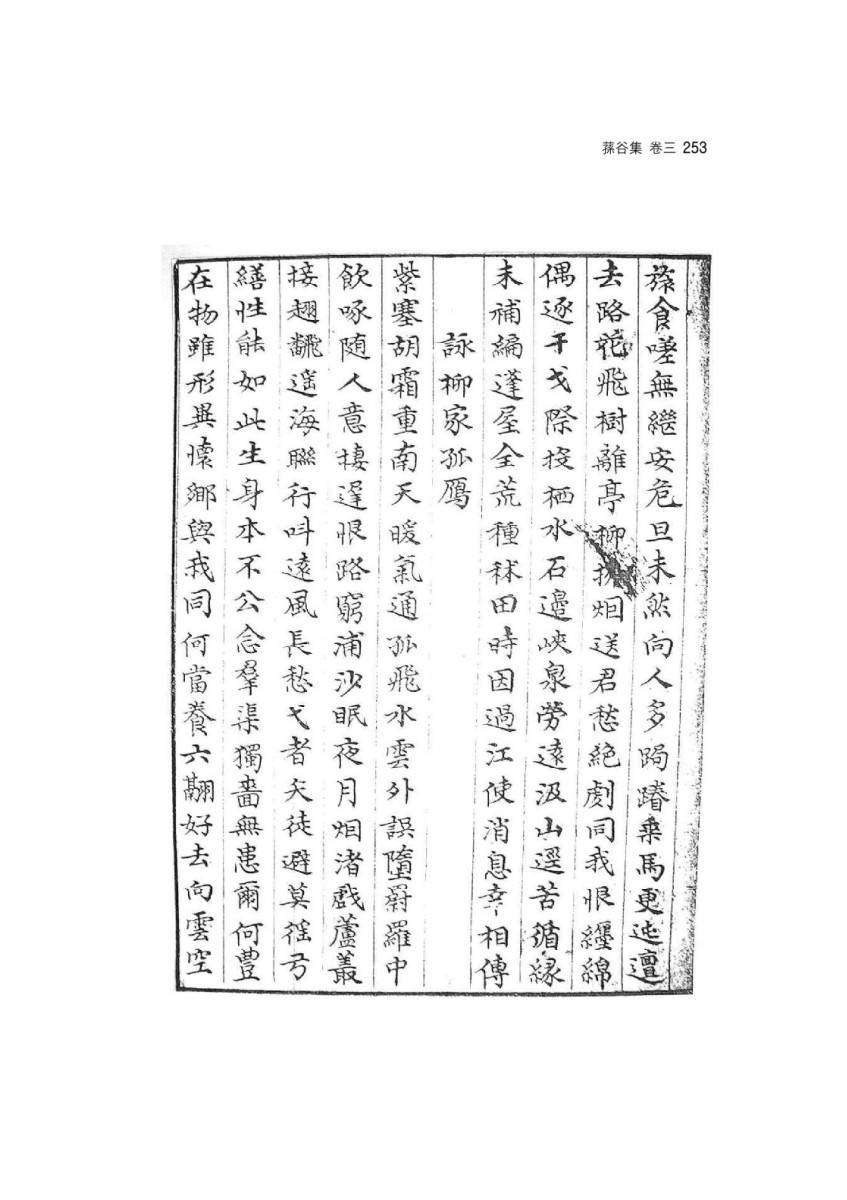 蓀谷集 卷三 253
蓀食嗟無繼安危旦未然向人多跼蹐乗馬更迍邅
去路花飛樹離亭柳拂烟送君愁絶劇同我恨纒綿
偶逐干戈際投栖水石邊峽泉勞遠汲山逕苦循縁
未補編蓬屋全荒種秫田時因過江使消息幸相傳
詠柳家孤鴈
紫塞胡霜重南天暖氣通孤飛水雲外誤墮罻羅中
飮啄随人意棲遅恨路窮浦沙眠夜月烟渚戱蘆叢
接翅飜遥海聯行呌遠風長愁弋者矢徒避莫徭弓
繕性能如此生身本不公念羣渠獨嗇無患爾何豊
在物雖形異懷鄉與我同何當養六翮好去向雲空